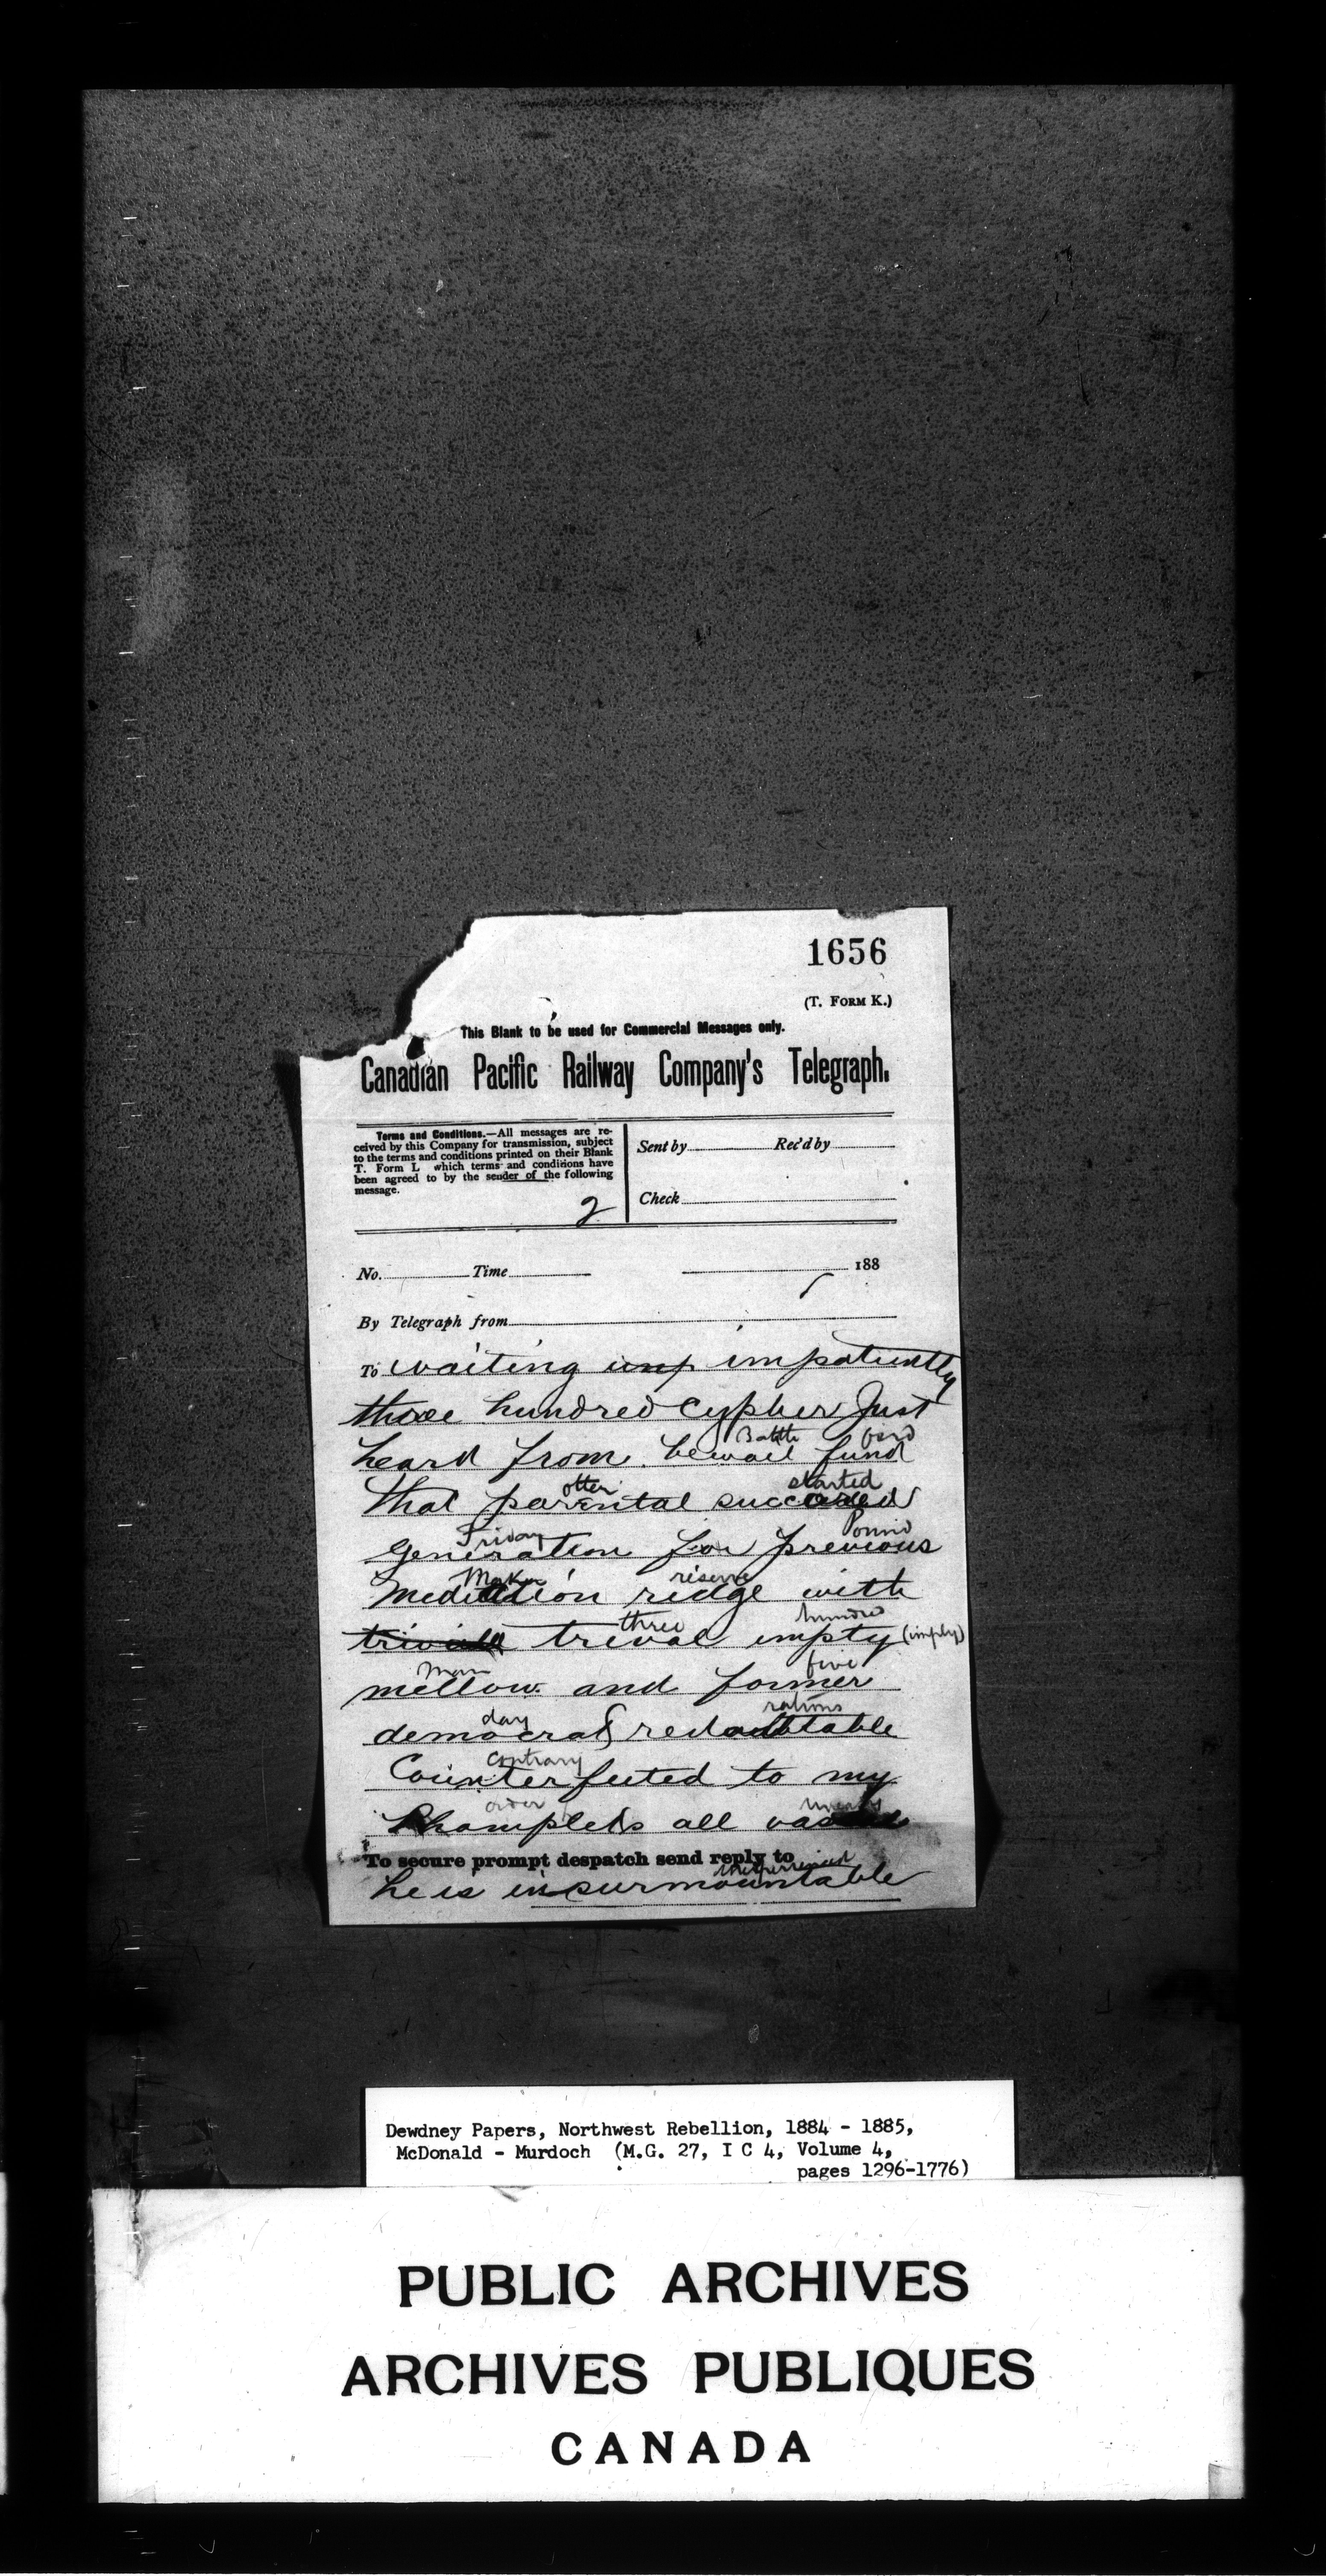 1656
(T. FORM K.)
This Blank to be used for Commercial Messages only.
Canadian Pacific Railway Company's Telegraph.
Terms and Conditions.—All messages are re-
ceived by this Company for transmission, subject
to the terms and conditions printed on their Blank
T. Form L which terms and conditions have
been agreed to by the sender of the following
message.
2
Sent by Rec'd by
Check
No. Time 188
By Telegraph from
To waiting imp impatiently
three hundred cypher Just
Battle ford
heard from bewail fund
otter started
that parental succeeded
Friday Pound
generation for previous
Maker reserve
mediation ridge with
three hundred
trivial empty (imply)
man five
mellow and former
day rations
democrat redoubtable
contrary
Counterfeited to my
order
Phamplets all
To secure prompt despatch send reply to
he is insurmountable
Dewdney Papers, Northwest Rebellion, 1884 - 1885,
McDonald - Murdoch (M.G. 27, I C 4, Volume 4,
pages 1296-1776)
PUBLIC ARCHIVES
ARCHIVES PUBLIQUES
CANADA